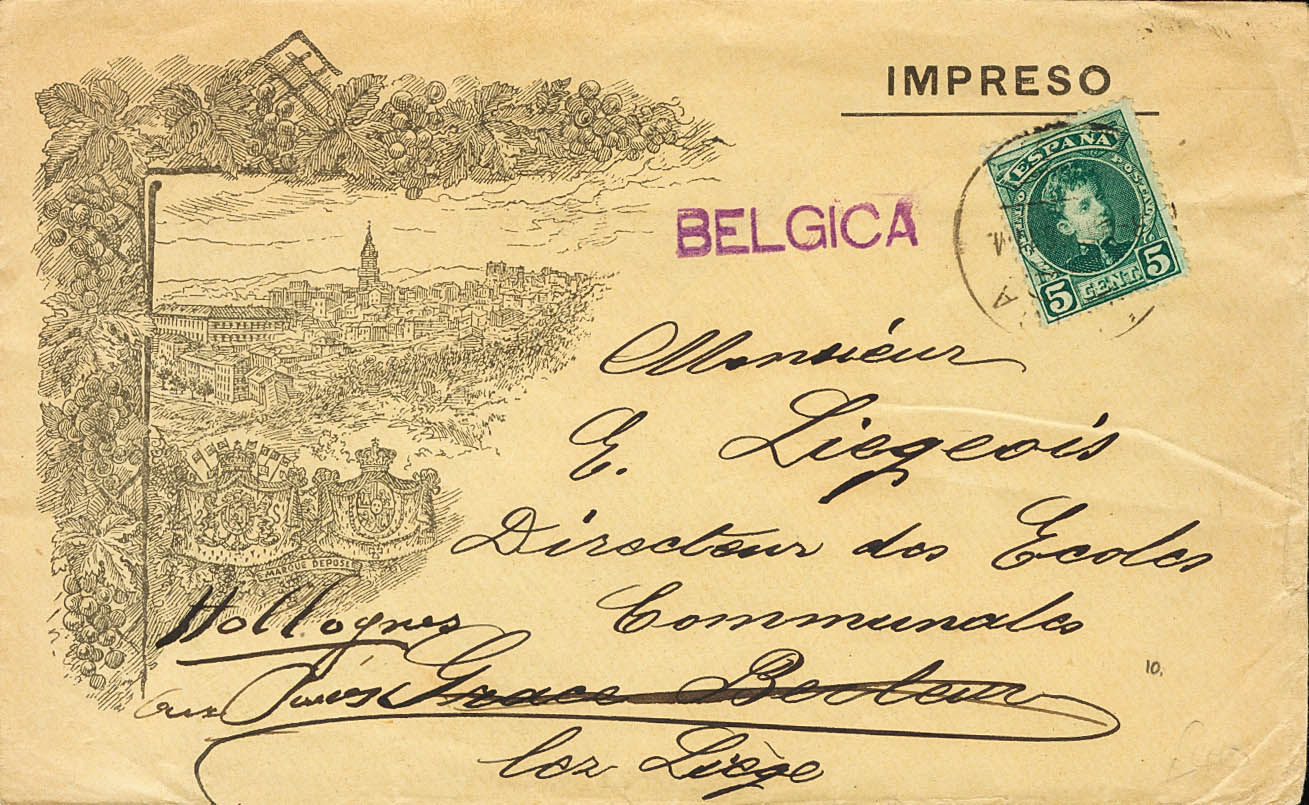 IMPRESO
ESPAÑA
5 CENT. 5
BELGICA
Monsieur
E. Liegeois
Directeur des Ecoles
Communales
MARQUE DEPOSE
Hollognes
aux
Grace Berleur
lez Liège
10.